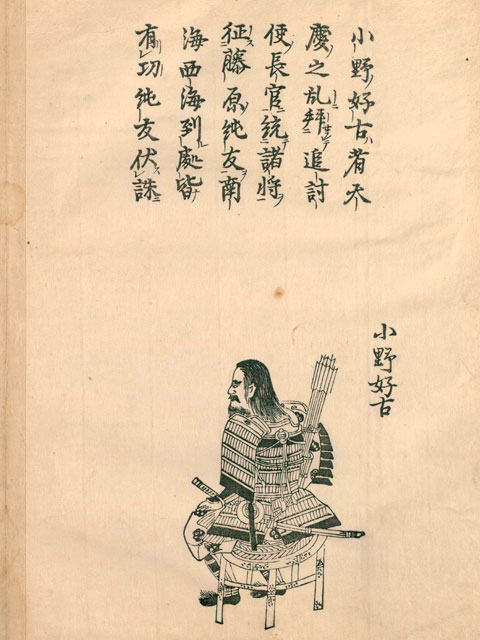 小野好古者天
慶之乱拜追討
使長官統諸将
征藤原純友南
海西海到處皆
有功純友伏誅
小野好古